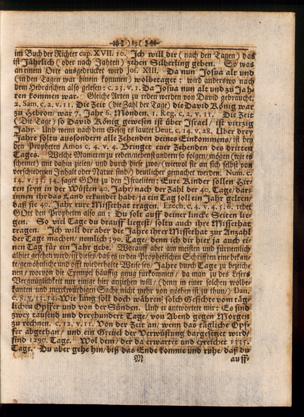 im Buch der Richter cap. XVII. 10. Ich will dir (nach den Tagen) das
ist Jährlich (oder nach Jahren) zehen Silberling geben. So was
an einem Orte ausgedruckt wird Jos. XIII. Da nun Josua alt und
(in den Tagen war hinein kommen) wolbetaget: wird anderswo nach
dem Hebräischen also gelesen: c. 23. v. 1. Da Josua nun alt und zu Jahr
ren kommen war. Gleiche Arten zu reden werden von David gebraucht.
2. Sam. c. 2. v. 11. Die Zeit (die Zahl der Tage) die David König war
zu Hebron/ war 7. Jahr 6. Monden. 1. Reg. c. 2. v. 11. Die Zeit
(Die Tage) so David König gewesen ist über Israel/ ist vierzig
Jahr. Und wenn nach dem Gesetz es lautet Deut. c. 14. v. 28. Über drey
Jahre solt du aussondern alle Zehenden deines Einkommens/ ist bey
den Propheten Amos c. 4. v. 4. Bringet eure Zehenden des dritten
Tages. Welche Manieren zu reden/
schienen) wir dahin zielen/ und durch diese
verschiedenen Inhalt oder Natur sind) deutlicher gemacht werden. Num. c.
14. v. 33. 34. saget GOtt zu den Israeliten: Eure Kinder sollen Hir-
ten seyn in der Wüsten 40. Jahr/ nach der Zahl der 40. Tage/ dar-
innen ihr das Land erkundet habt/ ja ein Tag soll ein Jahr gelten/
daß sie 40. Jahr eure Missethat tragen. Ezech. c. 4. v. 4. 5. 16. redet
GOtt den Propheten also an: Du solt auff deiner lincke Seiten lie-
gen. So viel Tage du drauff liegest/ soltu auch ihre Missethat
tragen. Ich will dir aber die Jahre ihrer Missethat zur Anzahl
der Tage machen/ nemlich 390. Tage/ denn ich dir hier ja auch ei-
nen Tag für ein Jahr gebe. Woraus
aber
daß es in den Prophetischen Schrifften eine bekan-
te/ gewöhnliche und offt wiederholte Weise sey/ Jahre durch Tage zu bezeich-
nen/ worvon die Exempel häuffig genug fürkommen/ da man zu des Lesers
Vergnügligkeit nur einige hier anziehen will/ (denn in einer solchen wolbe-
kannten und merckwürdigen Sache nicht mehr von nöthen ist zu thun/) Dan.
c. 8. v. 13. 14. Wie lang soll doch währen solch Gesichte vom täg-
lichen Opffer und von der Sünden. Und er antwortet mir: Es sind
zwey tausend und dreyhundert Tage/ von Abend gegen Morgen
zu rechnen. c. 12. v. 11. Von der Zeit an/ wenn das tägliche Opf-
fer abgethan/ und ein Greuel der Verwüstung dargesetzt wird/
sind 1290. Tage. Wol dem/ der da erwartet und erreichet 1335.
Tage. Du aber gehe hin/ biß das Ende komme und ruhe/ daß du
M auff